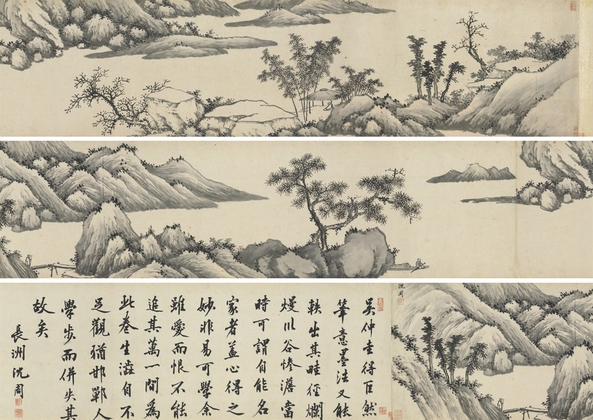 吳仲圭得巨然
筆意墨法又能
軼出其畦徑爛
熳川谷慘澹當
時可謂自能名
家者蓋心得之
妙非易可學余
雖愛而恨不能
追其萬一間為
此卷生澁自不
足觀猶邯鄲人
學步而併失其
故矣
長洲沈周
沈周